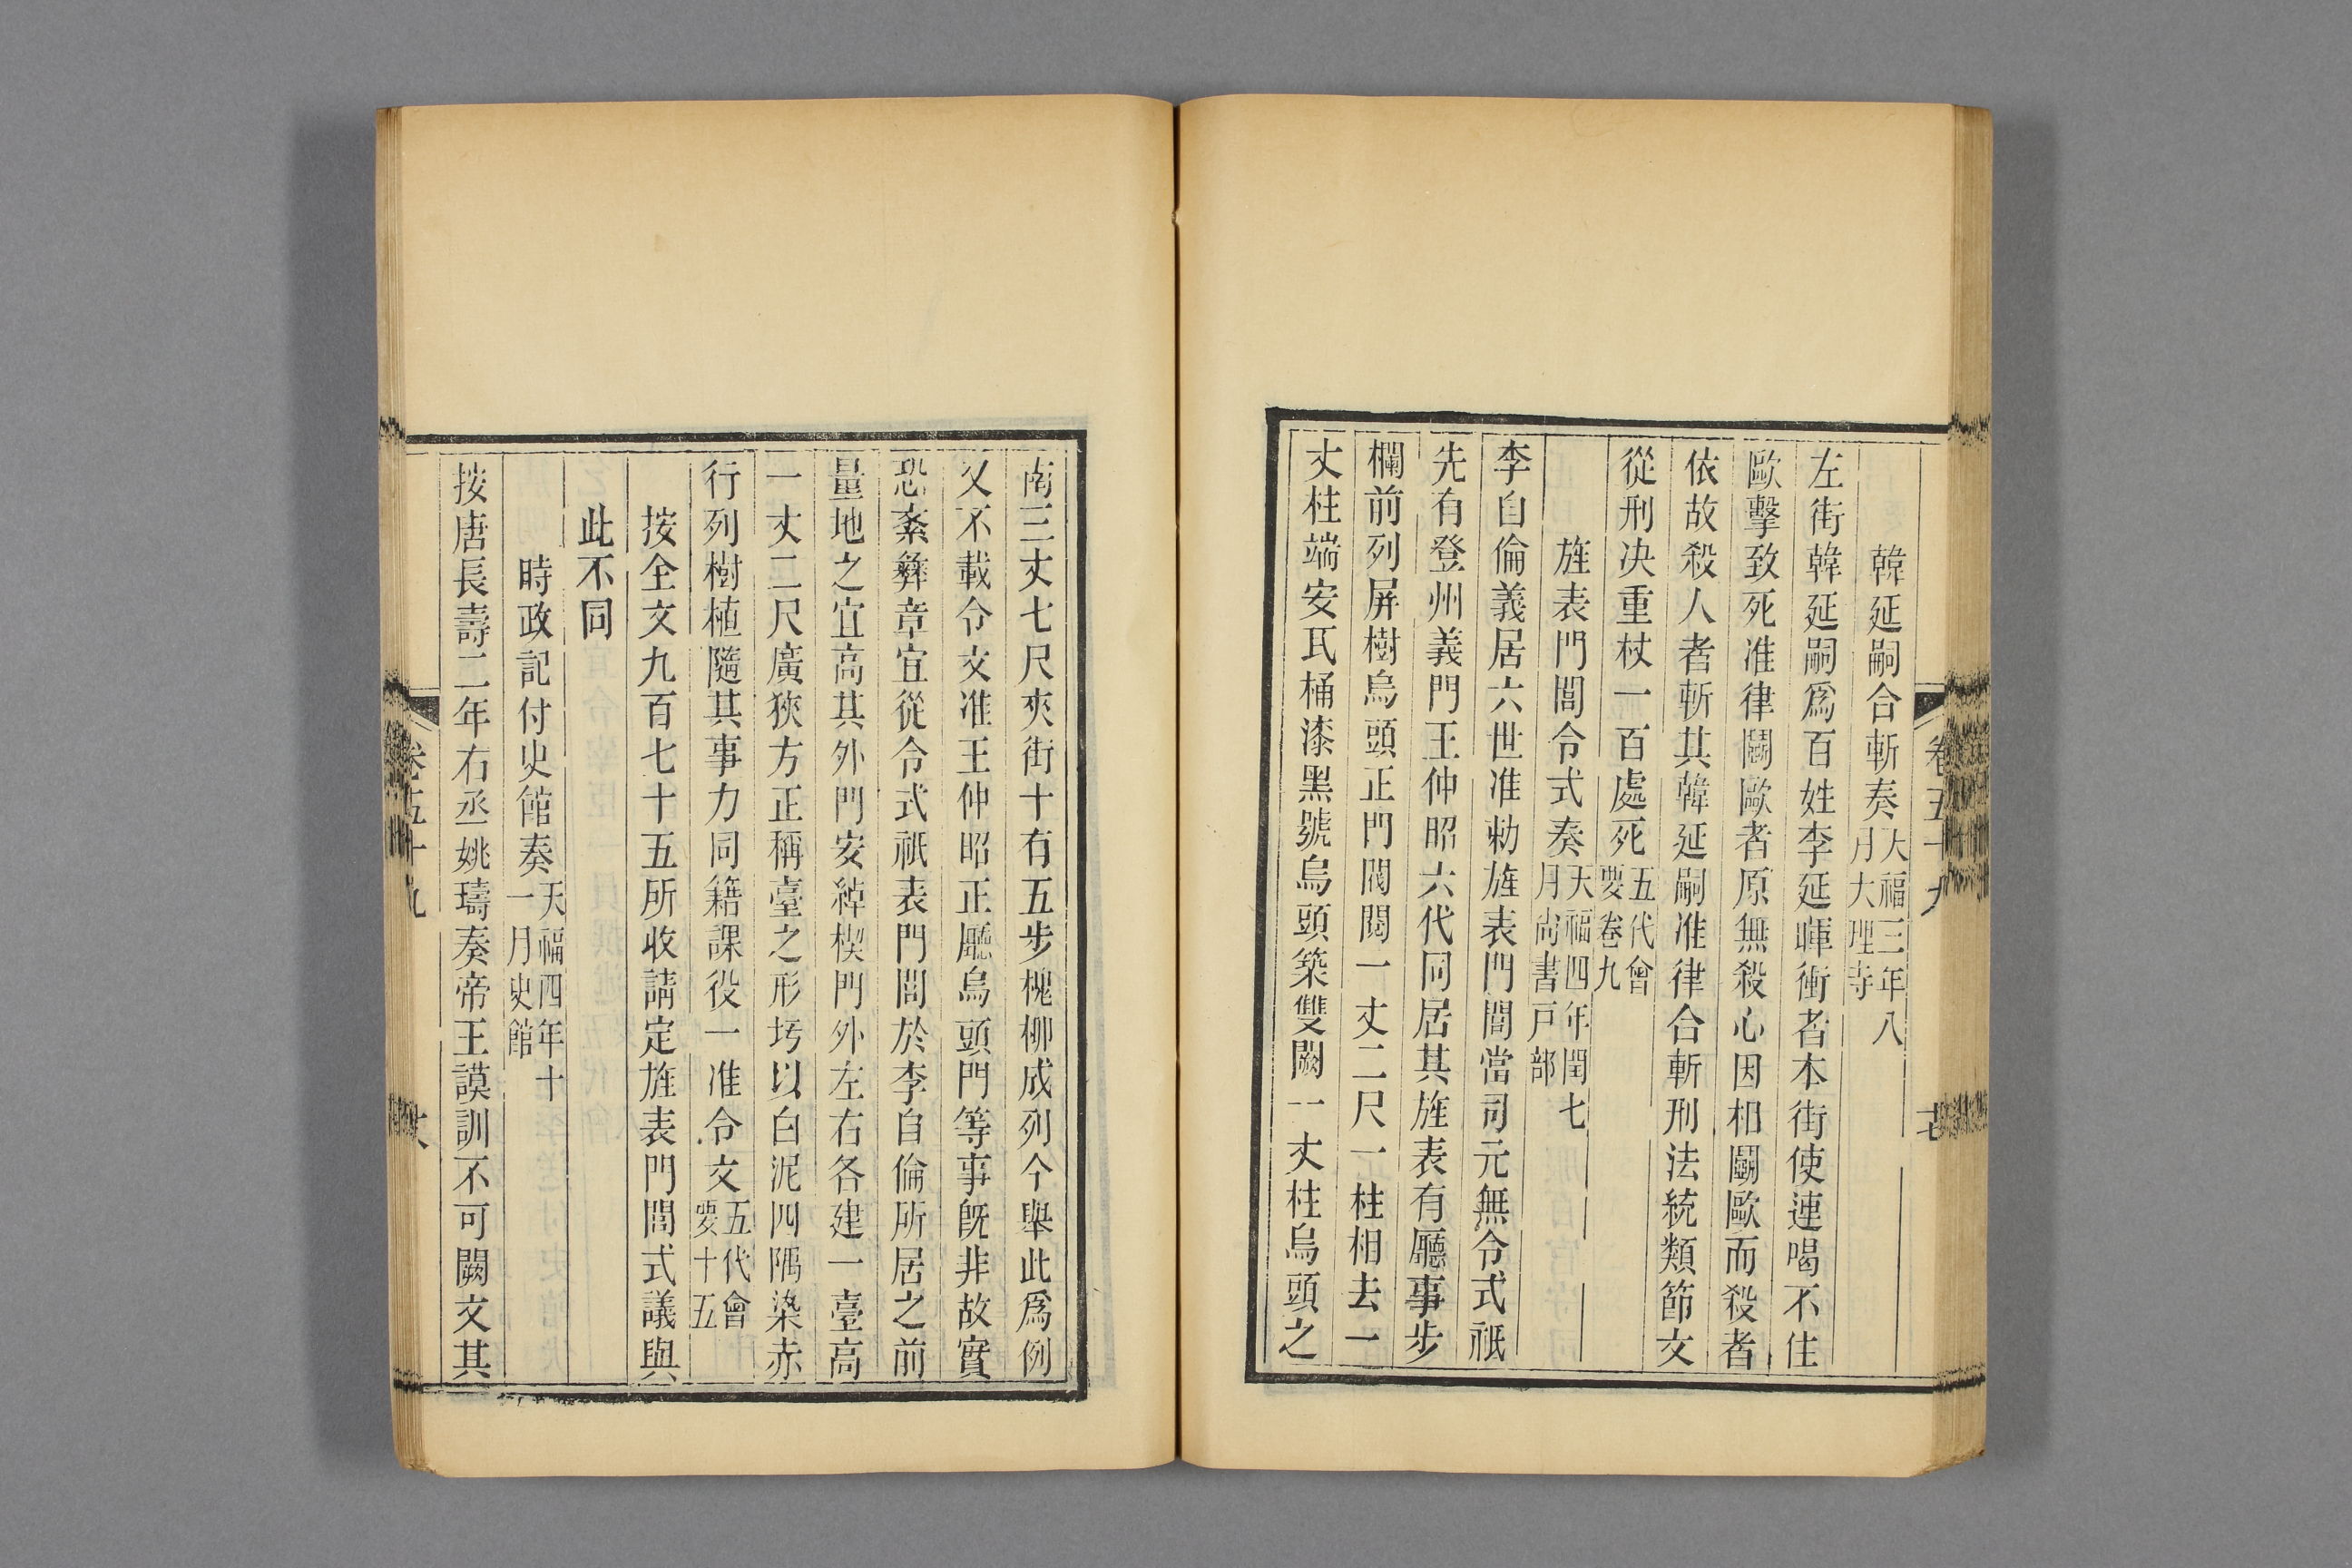 韓延嗣合斬奏天福三年八月大理寺
左街韓延嗣爲百姓李延暉衝者本街使連喝不住
毆擊致死准律鬬毆者原無殺心因相鬬毆而殺者
依故殺人者斬其韓延嗣准律合斬刑法統類節文
從刑决重杖一百處死五代會要卷九
旌表門閭令式奏天福四年閏七月尚書戸部
李自倫義居六世准勅旌表門閭當司元無令式祇
先有登州義門王仲昭六代同居其旌表有廳事步
欄前列屏樹烏頭正門閥閱一丈二尺一柱相去一
丈柱端安瓦桶漆黑號烏頭築雙闕一丈柱烏頭之
卷五十九
南三丈七尺夾街十有五步槐柳成列今舉此爲例
又不載令文准王仲昭正廳烏頭門等事旣非故實
恐紊彝章宜從令式祇表門閭於李自倫所居之前
量地之宜高其外門安綽楔門外左右各建一臺高
一丈二尺廣狹方正稱臺之形圬以白泥四隅染赤
行列樹植隨其事力同籍課役一准令文五代會要十五
按全文九百七十五所收請定旌表門閭式議與
此不同
時政記付史館奏天福四年十一月史館
按唐長壽二年右丞姚璹奏帝王謨訓不可闕文其
卷五十九